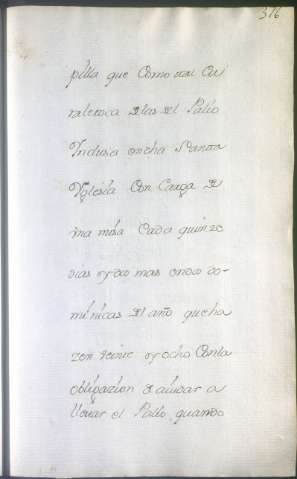 376
pilla que como tal Cu
ra
de las del Palio
Yndusa en cha Santa
Yglesia Con Carga de
vna misa Cada quinze
dias y dos mas en dos do-
minicas del año que ha
zen veinte y ocho Con la
obligazion de aiudar a
lleuar el Palio quando